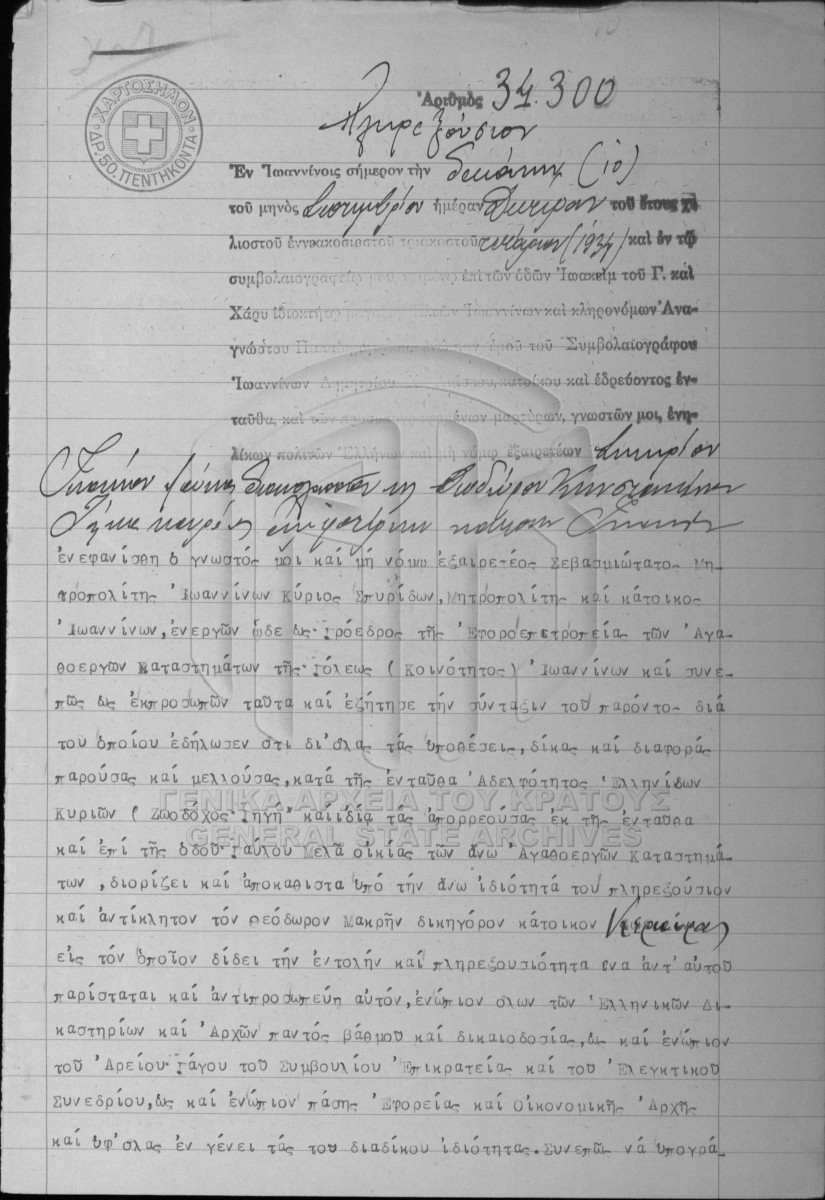 ΧΑΡΤΟΣΗΜΟΝ
ΔΡ. 50. ΠΕΝΤΗΚΟΝΤΑ
Ἀριθμὸς 34.300
Πληρεξούσιον
Ἐν Ἰωαννίνοις σήμερον τὴν δεκάτην (10)
τοῦ μηνὸς Σεπτεμβρίου ἡμέραν Δευτέραν τοῦ ἔτους χι-
λιοστοῦ ἐννεακοσιοστοῦ τριακοστοῦ τετάρτου (1934) καὶ ἐν τῷ
συμβολαιογραφείῳ μου, κειμένῳ ἐπὶ τῶν ὁδῶν Ἰωακεὶμ τοῦ Γ. καὶ
Χάρυ ἰδιοκτήτῳ Ἰωαννίνων καὶ κληρονόμων Ἀνα-
γνώστου ἐμοῦ τοῦ Συμβολαιογράφου
Ἰωαννίνων Δημητρίου κατοίκου καὶ ἑδρεύοντος ἐν-
ταῦθα, καὶ τῶν προσυπογραφομένων μαρτύρων, γνωστῶν μοι, ἐνη-
λίκων πολιτῶν Ἑλλήνων καὶ μὴ νόμῳ ἐξαιρετέων
ἐνεφανίσθη ὁ γνωστός μοι καί μή νόμω ἐξαιρετέος Σεβασμιώτατος Μη-
τροπολίτης Ἰωαννίνων Κύριος Σπυρίδων, Μητροπολίτης καί κάτοικος
Ἰωαννίνων, ἐνεργῶν ὧδε ὡς Πρόεδρος τῆς Ἐφοροεπετροπεία τῶν Ἀγα-
θοεργῶν Καταστημάτων τῆς Πόλεως (Κοινότητος) Ἰωαννίνων καί συνε-
πῶς ὡς ἐκπροσωπῶν ταῦτα καί ἐζήτησε τήν σύνταξιν τοῦ παρόντος διά
του ὁποίου ἐδήλωσεν ὅτι δι' ὅλας τάς υποθέσεις, δίκας καί διαφοράς
παρούσας καί μελλούσας, κατά τῆς ἐνταῦθα Ἀδελφότητος Ἑλληνίδων
Κυριῶν (Ζωοδόχος Πηγή" καί ἰδία τάς ἀπορρεούσας ἐκ τῆς ἐνταῦθα
καί ἐπί τῆς ὁδοῦ Παύλου Μελᾶ οἰκίας τῶν ἄνω Ἀγαθοεργῶν Καταστημά-
των, διορίζει καί ἀποκαθιστα υπό τήν ἄνω ἰδιότητά του πληρεξούσιον
καί ἀντίκλητον τόν Θεόδωρον Μακρῆν δικηγόρον κάτοικον Κερκύρας
εἰς τόν ὁποῖον δίδει τήν ἐντολήν καί πληρεξουσιότητα ἵνα ἀντ' αὐτοῦ
παρίσταται καί ἀντιπροσωπεύη αὐτόν, ἐνώπιον ὅλων τῶν Ἑλληνικῶν Δι-
καστηρίων καί Ἀρχῶν παντός βάθμου καί δικαιοδοσίας, ὡς καί ἐνώπιον
τοῦ Ἀρείου Πάγου τοῦ Συμβουλίου Ἐπικρατείας καί του Ἐλεγκτικοῦ
Συνεδρίου, ὡς καί ἐνώπιον πάσης Ἐφορείας καί Οἰκονομικῆς Ἀρχῆς
καί υφ' ὅλας ἐν γένει τάς του διαδίκου ἰδιότητας. Συνεπῶς νά υπογρά-
ΓΕΝΙΚΑ ΑΡΧΕΙΑ ΤΟΥ ΚΡΑΤΟΥΣ
GENERAL STATE ARCHIVES